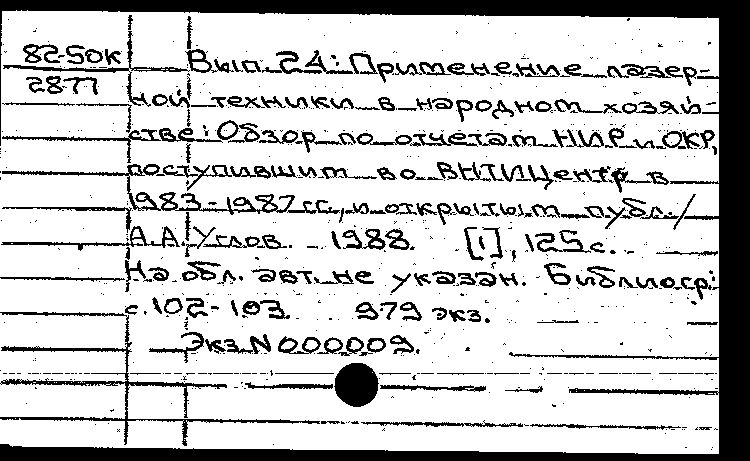 82-50К
2877
Вып. 24: Применение лазер-
ной техники в народном хозяй-
стве: Обзор по отчетам НИР и ОКР,
поступившим во ВНТИЦентр в
1983-1987 гг., и открытым публ./
А.А. Углов. - 1988. [1], 125 с.
На обл. авт. не указан. Библиогр:
с. 102-103. 979 экз.
Экз. N 000009.